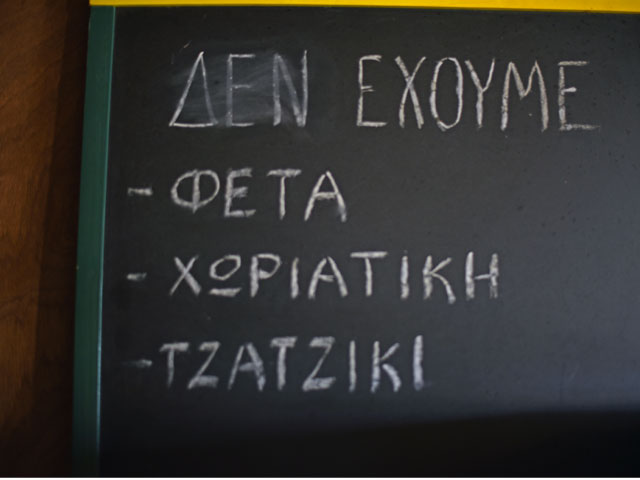 ΔΕΝ ΕΧΟΥΜΕ
- ΦΕΤΑ
- ΧΩΡΙΑΤΙΚΗ
- ΤΖΑΤΖΙΚΙ